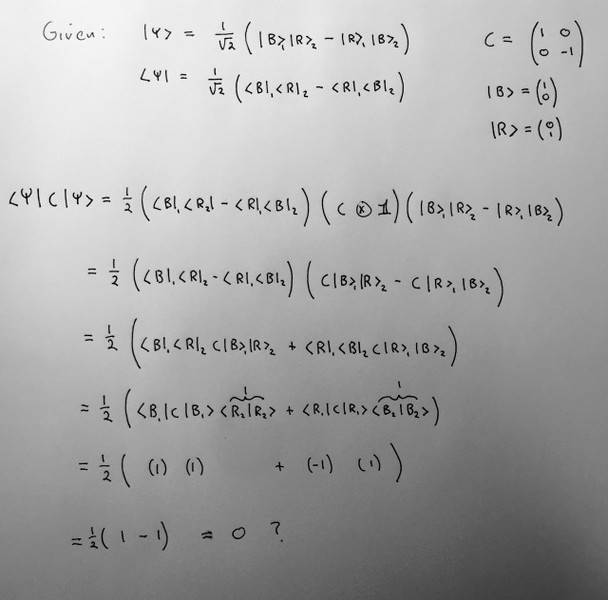 Given: |Ψ> = 1/√2 ( |B>₁|R>₂ − |R>₁|B>₂ ) C = (1 0
0 −1)
<Ψ| = 1/√2 ( <B|₁<R|₂ − <R|₁<B|₂ ) |B> = (1
0)
|R> = (0
1)
<Ψ|C|Ψ> = 1/2 ( <B|₁<R₂| − <R|₁<B|₂ ) ( C ⊗ 𝟙 ) ( |B>₁|R>₂ − |R>₁|B>₂ )
= 1/2 ( <B|₁<R|₂ − <R|₁<B|₂ ) ( C|B>₁|R>₂ − C|R>₁|B>₂ )
= 1/2 ( <B|₁<R|₂ C|B>₁|R>₂ + <R|₁<B|₂ C|R>₁|B>₂ )
1 1
= 1/2 ( <B₁|C|B₁> <R₂|R₂> + <R₁|C|R₁> <B₂|B₂> )
= 1/2 ( (1) (1) + (−1) (1) )
= 1/2 ( 1 − 1 ) = 0 ?